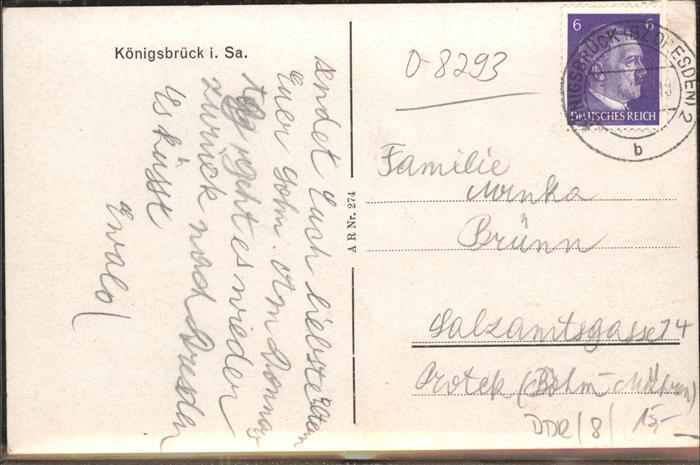 Königsbrück i. Sa.
sendet Euch liebste Eltern
Euer Sohn. Am Donners
tag geht es wieder
zurück nach Dresden
Es küsst
Ewald
A R Nr. 274
O-8293
6 6
DEUTSCHES REICH
KÖNIGSBRÜCK (BZ DRESDEN) 2
b
Familie
Brünn
Salzamtsgasse 24
Protek (Böhm-Mähren)
DDR/8/ 15,-